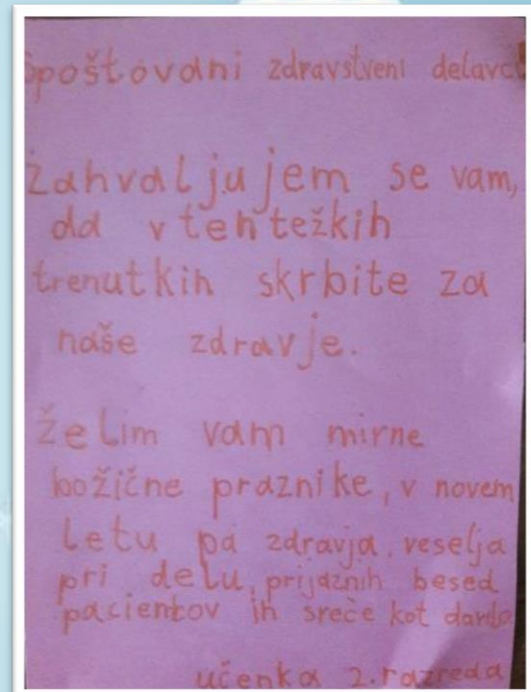 Spoštovani zdravstveni delavci
Zahvaljujem se vam,
da v teh težkih
trenutkih skrbite za
naše zdravje.
Želim vam mirne
božične praznike, v novem
letu pa zdravja, veselja
pri delu, prijaznih besed
pacientov in sreče kot darilo
učenka 2. razreda